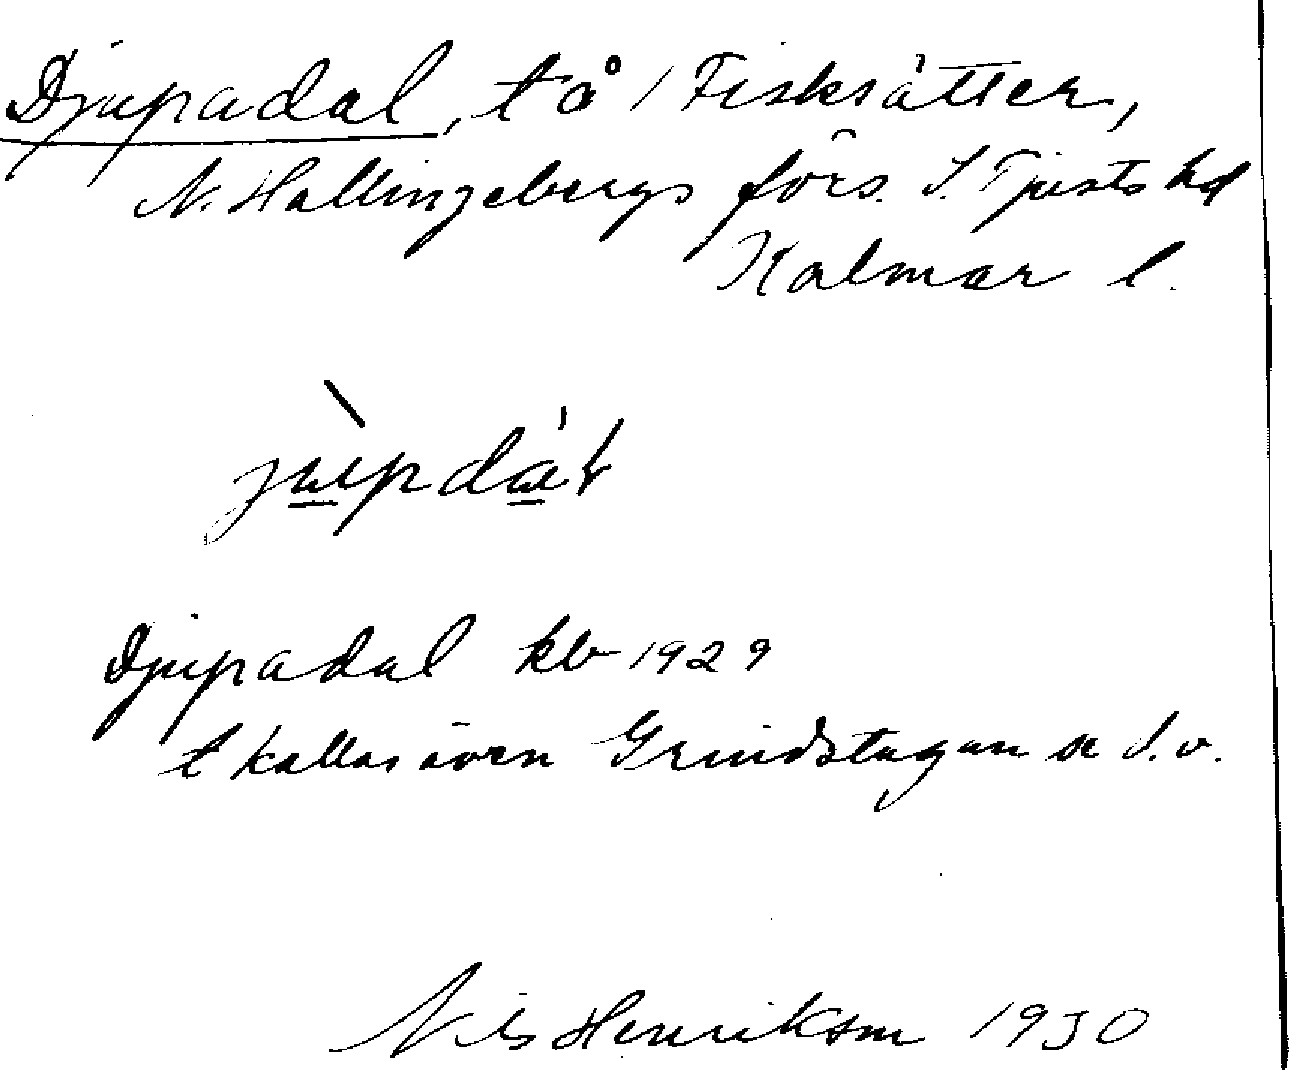 Djupadal, tå / Fisksätter,
N. Hallingebergs förs. S. Tjusts hd
Kalmar l.
jùpdál
Djupadal kb 1929
t kallas även Grindstugan se d.o.
Nils Henrikson 1930